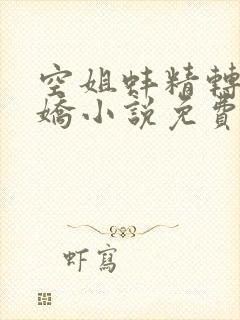 空姐蚌精轉
嬌小說免費
虾寫